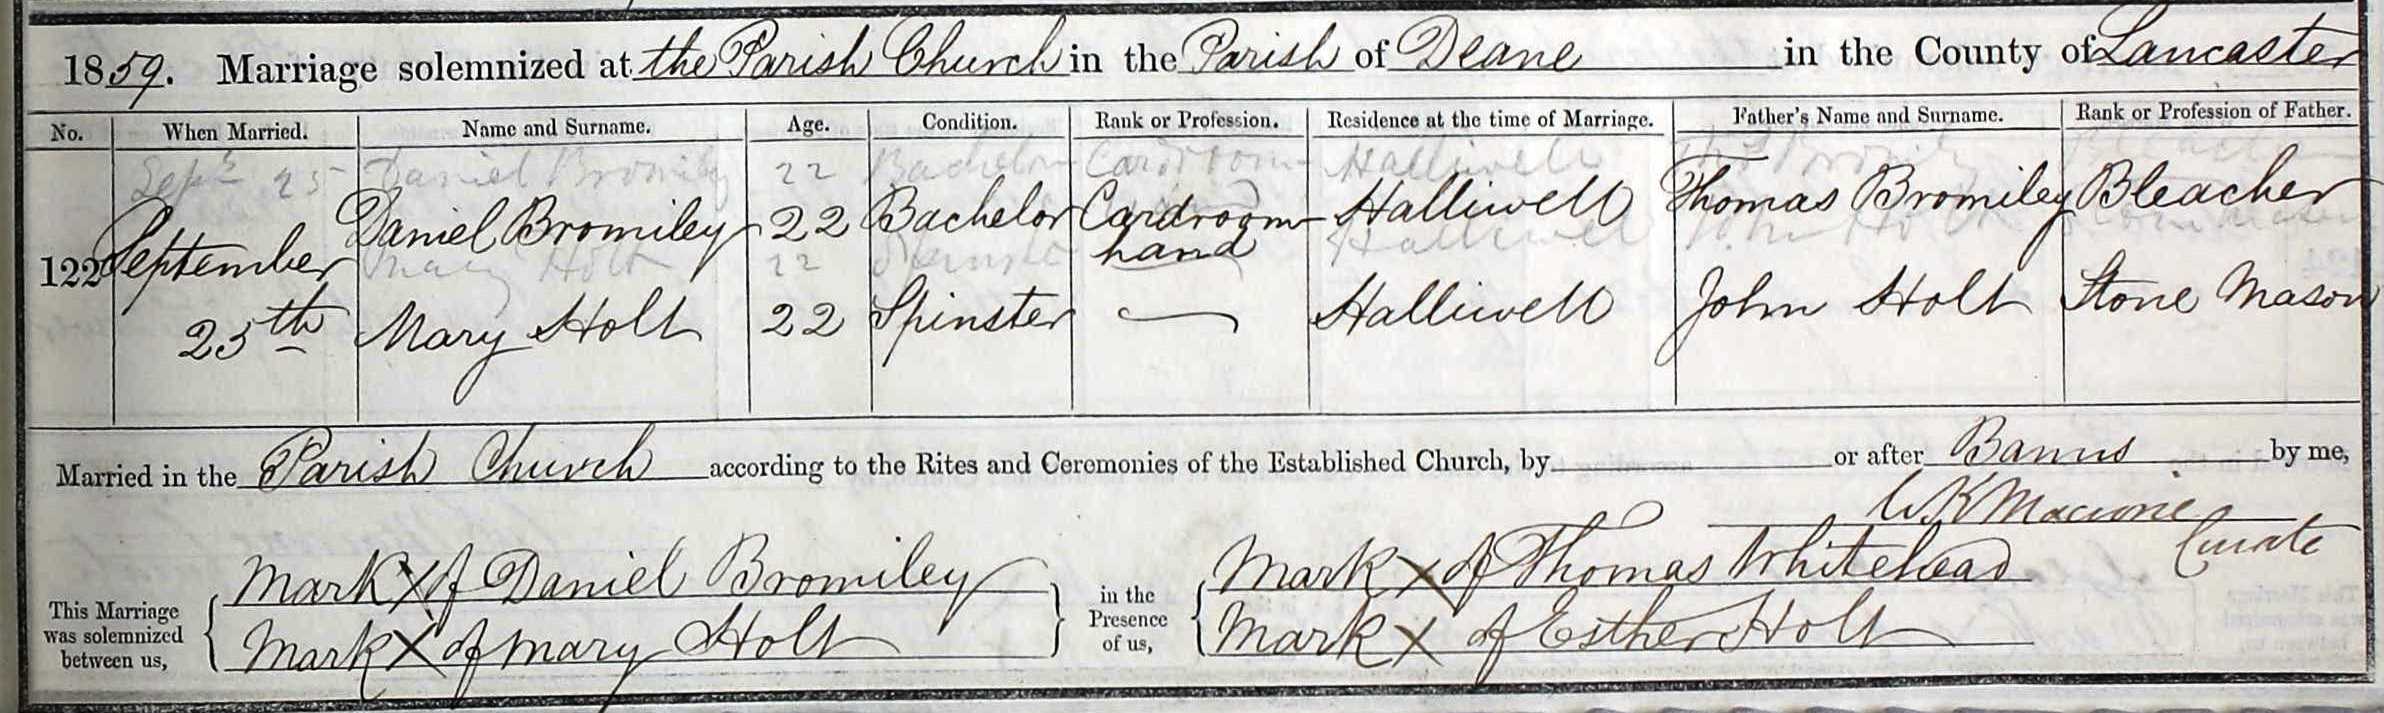 1859. Marriage solemnized at the Parish Church in the Parish of Deane in the County of Lancaster
No. When Married. Name and Surname. Age. Condition. Rank or Profession. Residence at the time of Marriage. Father's Name and Surname. Rank or Profession of Father.
Sept 25 Daniel Bromiley 22 Bachelor Cardroom Halliwell Thos Bromiley Bleacher
Daniel Bromiley 22 Bachelor Cardroom hand Halliwell Thomas Bromiley Bleacher
122 September 25th
Mary Holt 22 Spinster Halliwell John Holt
Mary Holt 22 Spinster — Halliwell John Holt Stone Mason
Married in the Parish Church according to the Rites and Ceremonies of the Established Church, by or after Banns by me,
W K Macrorie
Curate
This Marriage was solemnized between us,
Mark X of Daniel Bromiley
Mark X of Mary Holt
in the Presence of us,
Mark X of Thomas Whitehead
Mark X of Esther Holt